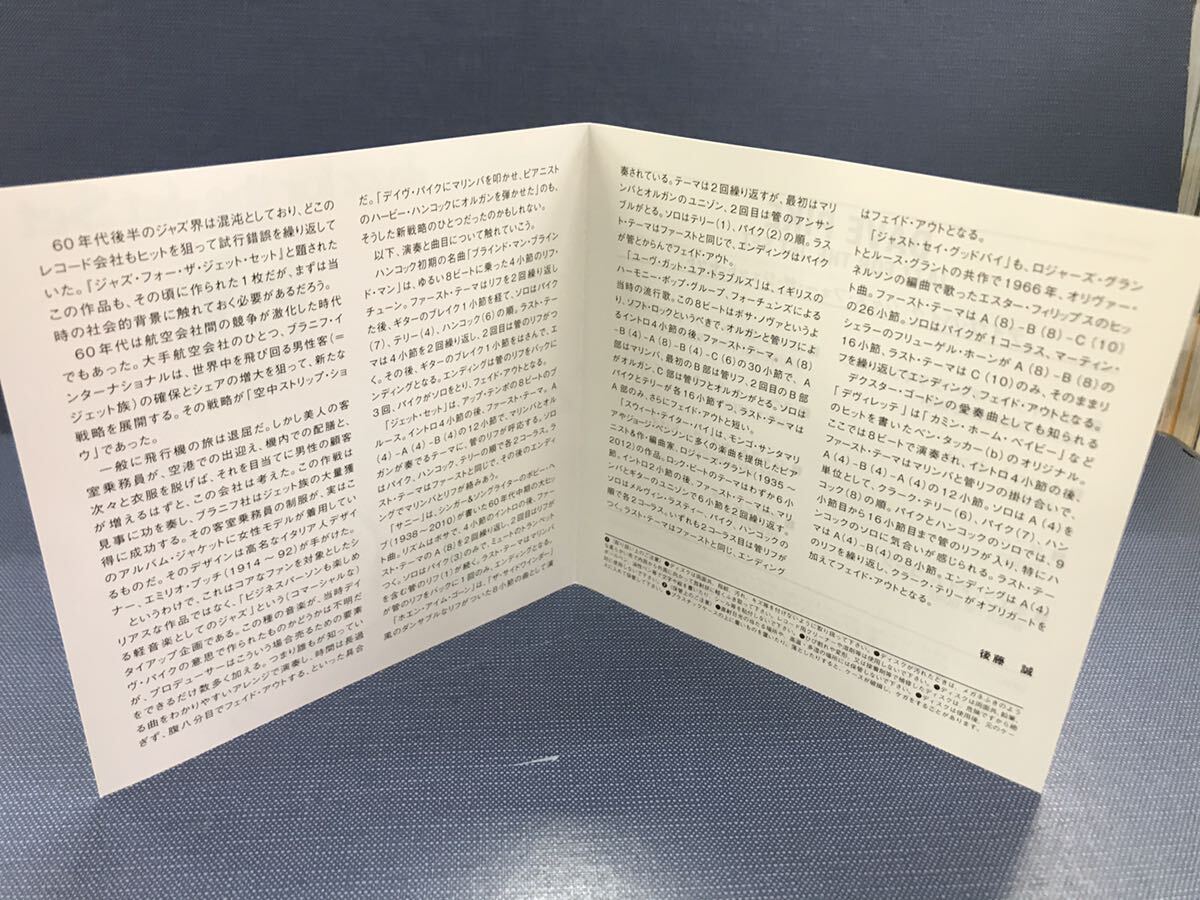 60年代後半のジャズ界は混沌としており、どこの
レコード会社もヒットを狙って試行錯誤を繰り返して
いた。『ジャズ・フォー・ザ・ジェット・セット』と題された
この作品も、その頃に作られた1枚だが、まずは当
時の社会的背景に触れておく必要があるだろう。
60年代は航空会社間の競争が激化した時代
でもあった。大手航空会社のひとつ、ブラニフ・イ
ンターナショナルは、世界中を飛び回る男性客(=
ジェット族)の確保とシェアの増大を狙って、新たな
戦略を展開する。その戦略が「空中ストリップ・ショ
ウ」であった。
一般に飛行機の旅は退屈だ。しかし美人の客
室乗務員が、空港での出迎え、機内での配膳と、
次々と衣服を脱げば、それを目当てに男性の顧客
が増えるはずと、この会社は考えた。この作戦は
見事に功を奏し、ブラニフ社はジェット族の大量獲
得に成功する。その客室乗務員の制服が、実はこ
のアルバム・ジャケットに女性モデルが着用してい
るものだ。そのデザインは高名なイタリア人デザイ
ナー、エミリオ・プッチ(1914~92)が手がけた。
というわけで、これはコアなファンを対象としたシ
リアスな作品ではなく、「ビジネスパーソンも楽しめ
る軽音楽としてのジャズ」という(コマーシャルな)
タイアップ企画である。この種の音楽が、当時デイ
ヴ・パイクの意思で作られたものかどうかは不明だ
が、プロデューサーはこういう場合売るための要素
をできるだけ数多く加える。つまり誰もが知ってい
る曲をわかりやすいアレンジで演奏し、時間は長過
ぎず、腹八分目でフェイド・アウトする、といった具合
だ。「デイヴ・パイクにマリンバを叩かせ、ピアニスト
のハービー・ハンコックにオルガンを弾かせた」のも、
そうした新戦略のひとつだったのかもしれない。
以下、演奏と曲目について触れていこう。
ハンコック初期の名曲「ブラインド・マン・ブライン
ド・マン」は、ゆるい8ビートに乗った4小節のリフ・
チューン。ファースト・テーマはリフを2回繰り返し
た後、ギターのブレイク1小節を経て、ソロはパイク
(7)、テリー(4)、ハンコック(6)の順。ラスト・テー
マは4小節を2回繰り返し、2回目は管のリフがつ
く。その後、ギターのブレイク1小節をはさんで、エ
ンディングとなる。エンディングは管のリフをバックに
3回、パイクがソロをとり、フェイド・アウトとなる。
「ジェット・セット」は、アップ・テンポの8ビートのブ
ルース。イントロ4小節の後、ファースト・テーマ。A
(4)-A(4)-B(4)の12小節で、マリンバとオル
ガンが奏でるテーマに、管のリフが呼応する。ソロ
はパイク、ハンコック、テリーの順で各2コーラス。ラ
スト・テーマはファーストと同じで、その後のエンディ
ングでマリンバとリフが絡みあう。
「サニー」は、シンガー&ソングライターのボビー・ヘ
ブ(1938~2010)が書いた60年代中期の大ヒッ
ト曲。リズムはボサで、4小節のイントロの後、ファー
スト・テーマのA(8)を2回繰り返し、2回目はリフが
つく。ソロはパイク(3)のみで、ミュートのトランペット
を含む管のリフ(1)が続く。ラスト・テーマはマリンバ
が管のリフをバックに1回のみ、エンディングとなる。
「ホエン・アイム・ゴーン」は、「ザ・サイドワインダー」
風のダンサブルなリフがついた8小節の曲として演
奏されている。テーマは2回繰り返すが、最初はマリ
ンバとオルガンのユニゾン、2回目は管のアンサン
ブルがとる。ソロはテリー(1)、パイク(2)の順。ラス
ト・テーマはファーストと同じで、エンディングはパイク
が管とからんでフェイド・アウト。
「ユーヴ・ガット・ユア・トラブルズ」は、イギリスの
ハーモニー・ポップ・グループ、フォーチュンズによる
当時の流行歌。この8ビートはボサ・ノヴァというよ
り、ソフト・ロックというべきで、オルガンと管リフによ
るイントロ4小節の後、ファースト・テーマ。A(8)
-B(4)-A(8)-B(4)-C(6)の30小節で、A
部はマリンバ、最初のB部は管リフ、2回目のB部
がオルガン、C部は管リフとオルガンがとる。ソロは
パイクとテリーが各16小節ずつ、ラスト・テーマは
A部のみ、さらにフェイド・アウトと短い。
「スウィート・テイター・パイ」は、モンゴ・サンタマリ
アやジョージ・ベンソンに多くの楽曲を提供したピア
ニスト&作・編曲家、ロジャーズ・グラント(1935~
2012)の作品。ロック・ビートのテーマはわずか6小
節。イントロ2小節の後、ファースト・テーマは、マリ
ンバとギターのユニゾンで6小節を2回繰り返す。
ソロはメルヴィン・ラスティー、パイク、ハンコックの
順で各2コーラス。いずれも2コーラス目は管リフが
つく。ラスト・テーマはファーストと同じ、エンディング
はフェイド・アウトとなる。
「ジャスト・セイ・グッドバイ」も、ロジャーズ・グラン
トとルース・グラントの共作で1966年、オリヴァー・
ネルソンの編曲で歌ったエスター・フィリップスのヒッ
ト曲。ファースト・テーマはA(8)-B(8)-C(10)
の26小節。ソロはパイクが1コーラス、マーティン・
シェラーのフリューゲル・ホーンがA(8)-B(8)の
16小節、ラスト・テーマはC(10)のみ、そのままリ
フを繰り返してエンディング、フェイド・アウトとなる。
デクスター・ゴードンの愛奏曲としても知られる
「デヴィレッテ」は「カミン・ホーム・ベイビー」など
のヒットを書いたベン・タッカー(b)のオリジナル。
ここでは8ビートで演奏され、イントロ4小節の後、
ファースト・テーマはマリンバと管リフの掛け合いで、
A(4)-B(4)-A(4)の12小節。ソロはA(4)を
単位として、クラーク・テリー(6)、パイク(7)、ハン
コック(8)の順。パイクとハンコックのソロでは、9
小節目から16小節目まで管のリフが入り、特にハ
ンコックのソロに気合いが感じられる。ラスト・テー
マはA(4)-B(4)の8小節。エンディングはA(4)
のリフを繰り返し、クラーク・テリーがオブリガートを
加えてフェイド・アウトとなる。
後藤 誠